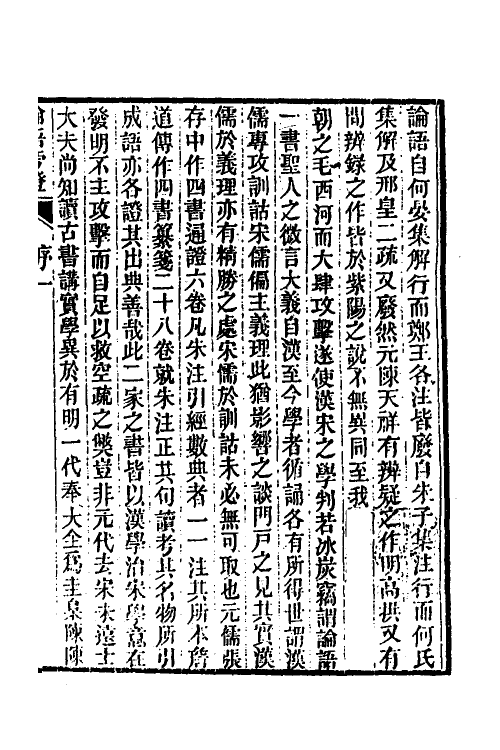 論語自何晏集解行而鄭王各注皆廢自朱子集注行而何氏
集解及邢皇二疏又廢然元陳天祥有辨疑之作明高拱又有
問辨錄之作皆於紫陽之說不無異同至我
朝之毛西河而大肆攻擊遂使漢宋之學判若冰炭竊謂論語
一書聖人之微言大義自漢至今學者循誦各有所得世謂漢
儒專攻訓詁宋儒偏主義理此猶影響之談門戶之見其實漢
儒於義理亦有精勝之處宋儒於訓詁未必無可取也元儒張
存中作四書通證六卷凡朱注引經數典者一一注其所本詹
道傳作四書纂箋二十八卷就朱注正其句讀考其名物所引
成語亦各證其出典善哉此二家之書皆以漢學治宋學意在
發明不主攻擊而自足以救空疏之獘豈非元代去宋未遠士
大夫尚知讀古書講實學異於有明一代奉大全爲圭臬陳陳
論語旁證
序一